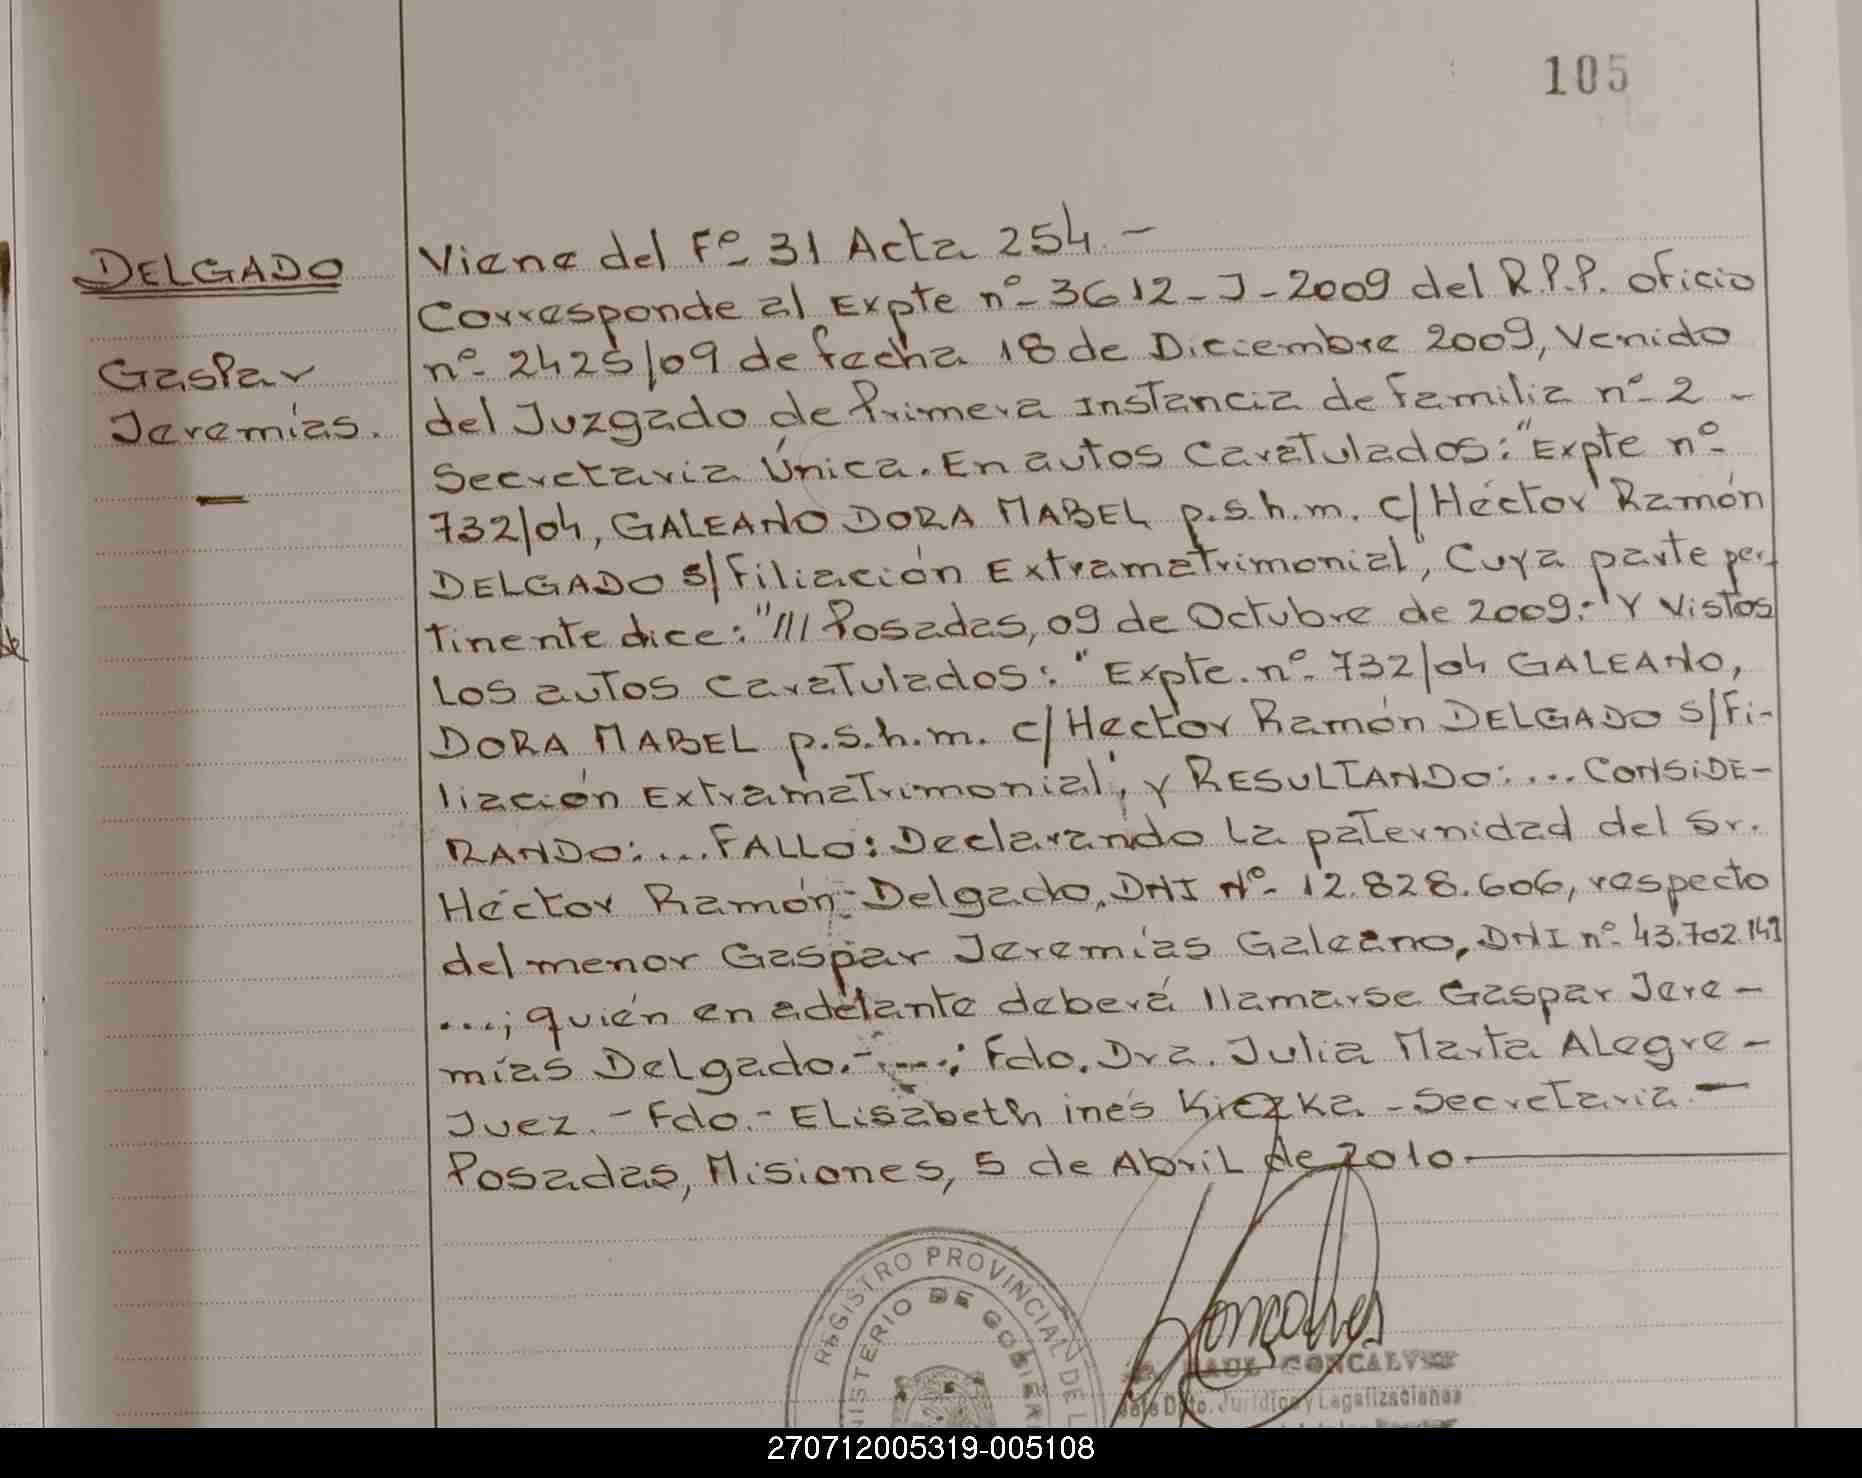 105
DELGADO
Gaspar
Jeremías.
Viene del Fº 31 Acta 254.-
Corresponde al Expte nº 3612-J-2009 del R.P.P. oficio
nº 2425/09 de fecha 18 de Diciembre 2009, Venido
del Juzgado de Primera Instancia de familia nº 2 -
Secretaria Única. En autos Caratulados: "Expte nº
732/04, GALEANO DORA MABEL p.s.h.m. c/ Héctor Ramón
DELGADO s/ Filiación Extramatrimonial", Cuya parte per-
tinente dice: "/// Posadas, 09 de Octubre de 2009.- Y Vistos
Los autos caratulados: "Expte. nº 732/04 GALEANO,
DORA MABEL p.s.h.m. c/ Hector Ramón DELGADO s/ Fi-
liación Extramatrimonial", y RESULTANDO: ... CONSIDE-
RANDO: ... FALLO: Declarando la paternidad del Sr.
Héctor Ramón Delgado, DNI Nº 12.828.606, respecto
del menor Gaspar Jeremías Galeano, DNI nº 43.702.149
...; quién en adelante deberá llamarse Gaspar Jere-
mías Delgado.- ...; Fdo. Dra. Julia Marta Alegre -
Juez. - Fdo.- Elisabeth inés Kiczka - Secretaria. -
Posadas, Misiones, 5 de Abril de 2010.
REGISTRO PROVINCIAL DE L
MINISTERIO DE GOBIER
RAUL GONCALVES
Jefe Dpto. Jurídico y Legalizaciones
270712005319-005108